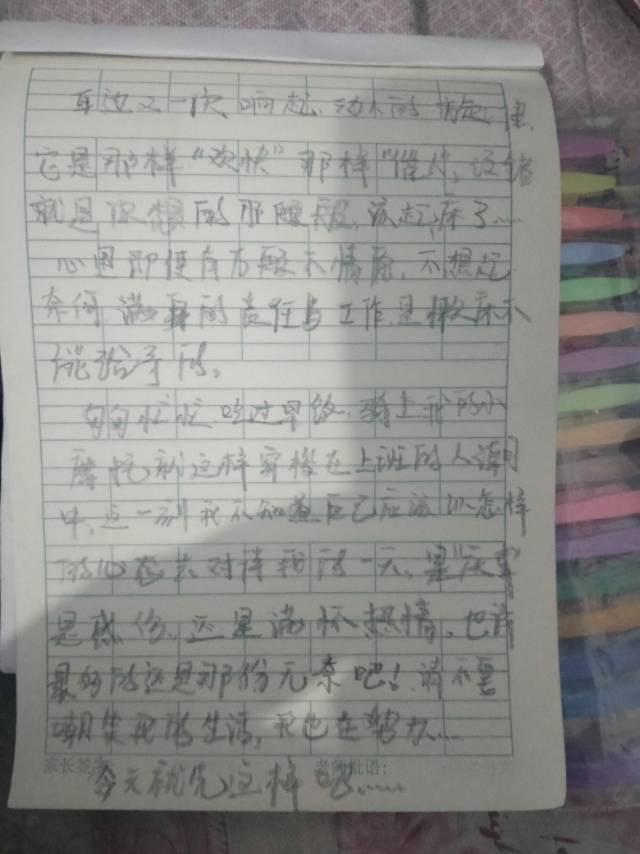 耳边又一次响起,动人的旋律,
它是那样“欢快”那样“催人”,没错
就是你想的那种,该起床了……
心里即便有万般不情愿,不想起
奈何满身的责任与工作是撒手不
能给予的。
匆匆忙忙吃过早饭,骑上我的小
摩托就这样穿梭在上班的人潮
中,这一刻我不知道自己应该以怎样
的心态去对待我的一天,是“庆幸”
是感伤,还是满怀热情,也许
最好的还是那份无奈吧!请不要
嘲笑我的生活,我也在努力……
家长签字: 老师批语:
今天就先这样吧……